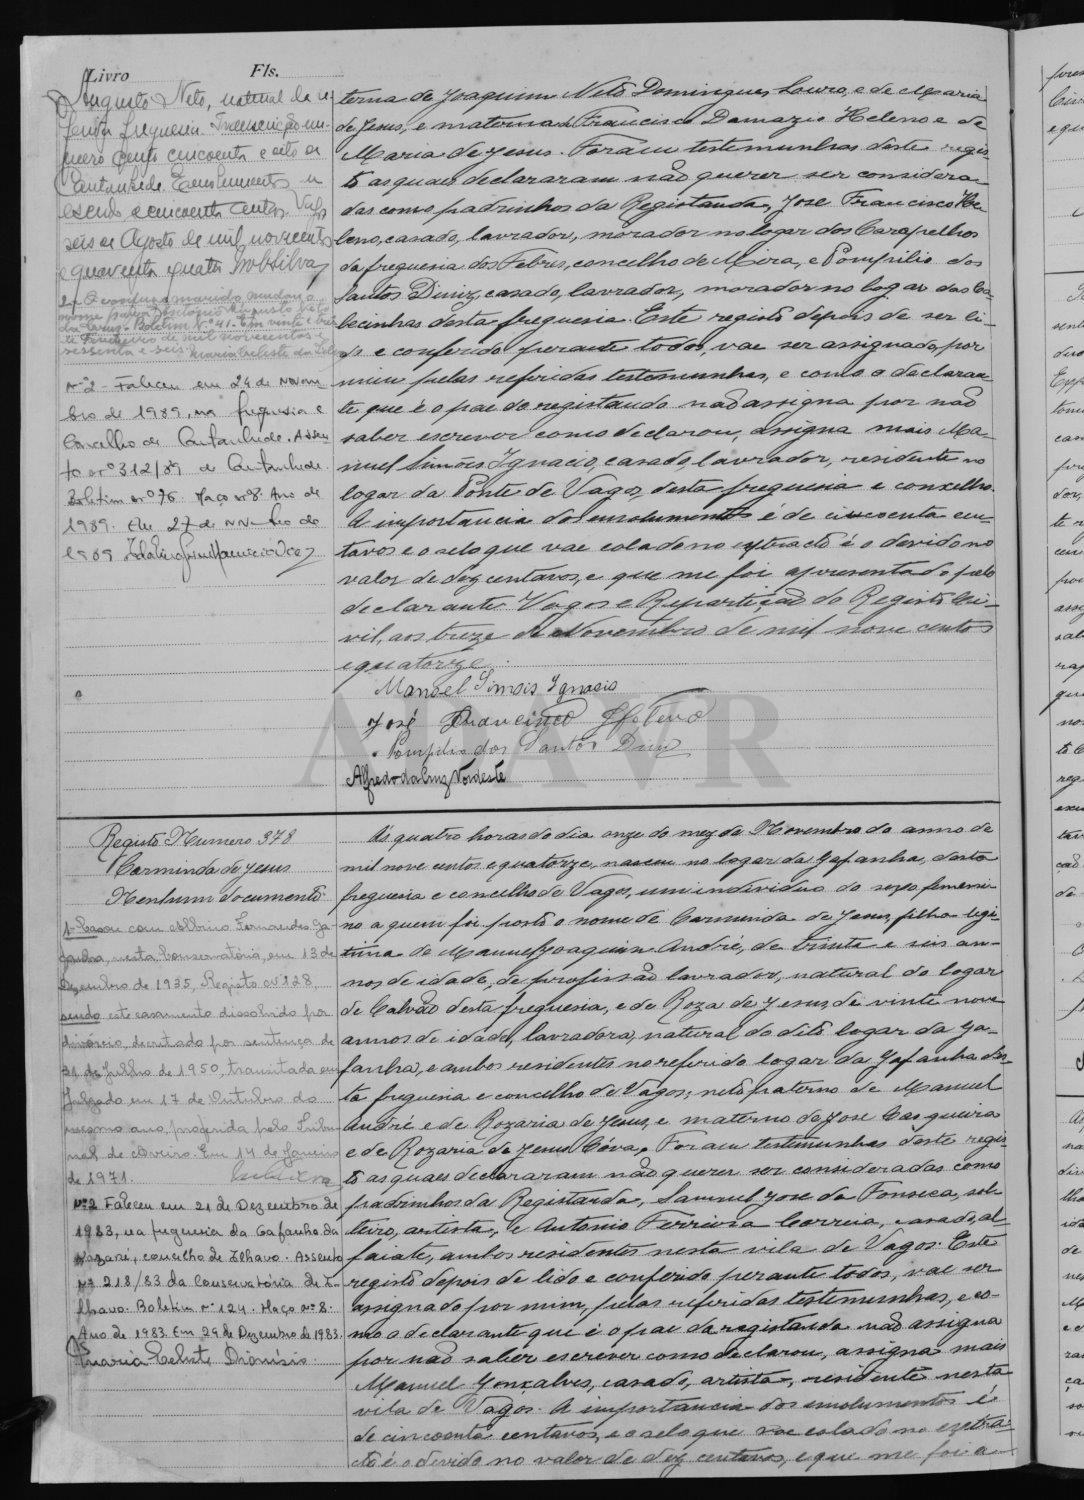 Livro Fls.
Augusto Neto, natural da re-
ferida freguesia. Transcrição nu-
mero cento cincoenta e oito de
Cantanhede. Emolumentos um
escudo e cincoenta centavos. Vagos
seis de Agosto de mil novecentos
e quarenta e quatro
2.º O conjuge marido mudou o
nome para Antonio Augusto Neto
da Cruz. Boletim Nº 41. Em vinte e tres
de Fevereiro de mil novecentos e
sessenta e seis. Maria Celeste
Nº 2 - Faleceu em 24 de Novem-
bro de 1989, na freguesia e
Concelho de Cantanhede. Assen-
to nº 312/89 de Cantanhede.
Boletim nº 76. Maço nº 8. Ano de
1989. Em 27 de Novembro de
1989
terna de Joaquim Neto Domingues Louro, e de Maria
de Jesus, e materna de Francisco Damazio Heleno e de
Maria de Jesus. Foram testemunhas deste regis-
to as quaes declararam não querer ser considera-
das como padrinhos da Registanda, Jose Francisco He-
leno, casado, lavrador, morador no logar dos Carapelhos
da freguesia dos Febres, concelho de Mira, e Pompilio dos
Santos Diniz, casado, lavrador, morador no logar das Ca-
becinhas desta freguesia. Este registo depois de ser li-
do e conferido perante todos, vae ser assignado por
mim pelas referidas testemunhas, e como o declaran-
te que é o pae do registando não assigna por não
saber escrever como declarou, assigna mais Ma-
nuel Simões Ignacio, casado, lavrador, residente no
logar da Ponte de Vagos, desta freguesia e concelho.
A importancia dos emolumentos é de cincoenta cen-
tavos, e o selo que vae colado no extracto é o devido no
valor de dez centavos, e que me foi apresentado pelo
declarante. Vagos e Repartição do Registo Ci-
vil, aos treze de Novembro de mil nove centos
e quatorze.
Manoel Simois Ignacio
José Francisco Heleno
Pompilio dos Santos Diniz
Alfredo da Cruz Nordeste
ADAVR
Registo Numero 378
Carminda de Jesus
Nenhum documento
1- Casou com Albino Fernandes Ga-
fanha, nesta Conservatória, em 13 de
Dezembro de 1935, Registo Nº 128,
sendo este casamento dissolvido por
divorcio, decretado por sentença de
31 de Julho de 1950, transitada em
julgado em 17 de Outubro do
mesmo ano, proferida pelo Tribu-
nal de Aveiro. Em 14 de Janeiro
de 1971.
Nº 2 Faleceu em 21 de Dezembro de
1983, na freguesia da Gafanha da
Nazaré, concelho de Ilhavo. Assento
nº 218/83 da Conservatória de I-
lhavo. Boletim nº 124. Maço nº 8.
Ano de 1983. Em 29 de Dezembro de 1983.
Maria Celeste Dionísio.
Ás quatro horas do dia onze do mez de Novembro do anno de
mil nove centos e quatorze, nasceu no logar da Gafanha, desta
freguesia e concelho de Vagos, um individuo do sexo femeni-
no a quem foi posto o nome de Carminda de Jesus, filha legi-
tima de Manuel Joaquim André, de trinta e seis an-
nos, de idade, de profissão lavrador, natural do logar
de Calvão desta freguesia, e de Roza de Jesus, de vinte nove
annos de idade, lavradora, natural do dito logar da Ga-
fanha, e ambos residentes no referido logar da Gafanha des-
ta freguesia e concelho de Vagos; neto paterno de Manuel
André e de Rozaria de Jesus, e materno de Jose Casqueira
e de Rozaria de Jesus Cóva. Foram testemunhas deste regis-
to as quaes declararam não querer ser consideradas como
padrinhos da Registanda, Samuel Jose da Fonseca, sol-
teiro, artista, e Antonio Ferreira Correia, casado, al-
faiate, ambos residentes nesta vila de Vagos. Este
registo depois de lido e conferido perante todos, vae ser
assignado por mim, pelas referidas testemunhas, e co-
mo o declarante que é o pae da registanda não assigna
por não saber escrever como declarou, assigna mais
Manuel Gonçalves, casado, artista, residente nesta
vila de Vagos. A importancia dos emolumentos é
de cincoenta centavos, e o selo que vae colado no extra-
cto é o devido no valor de dez centavos, e que me foi a-